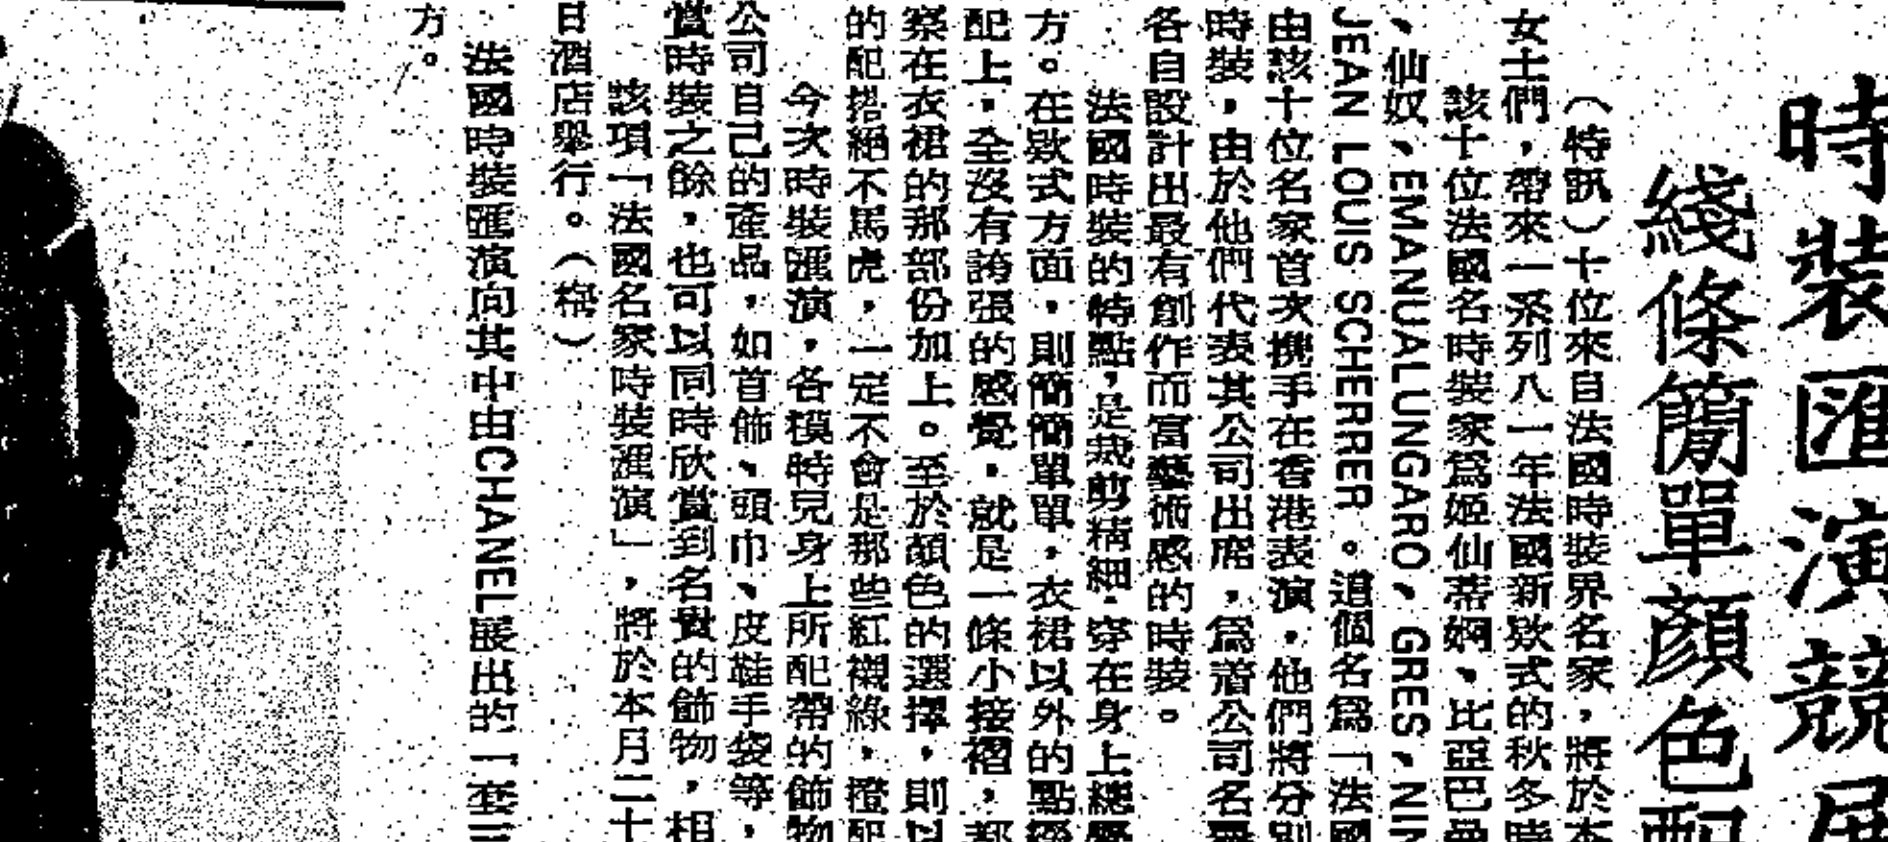 時裝匯演競展
綫條簡單顏色配
（特訊）十位來自法國時裝界名家，將於本
女士們，帶來一系列八一年法國新欵式的秋冬時
該十位法國名時裝家爲姬仙蒂婀、比亞巴曼
、仙奴、EMANUALUNGARO、GRES、NIN
JEAN LOUIS SCHERRER。這個名爲「法國
由該十位名家首次携手在香港表演，他們將分別
時裝，由於他們代表其公司出席，爲着公司名譽
各自設計出最有創作而富藝術感的時裝。
法國時裝的特點，是裁剪精細，穿在身上總
方。在欵式方面，則簡簡單單，衣裙以外的點綴
配上，全沒有誇張的感覺，就是一條小接褶，都
察在衣裙的那部份加上。至於顏色的選擇，則以
的配搭絕不馬虎，一定不會是那些紅襯綠，橙配
今次時裝匯演，各模特兒身上所配帶的飾物
公司自己的產品，如首飾、頭巾、皮鞋手袋等，
當時裝之餘，也可以同時欣賞到名貴的飾物，相
該項「法國名家時裝匯演」，將於本月二十
日酒店舉行。（樂）
法國時裝匯演向其中由CHANEL展出的一套三
方。